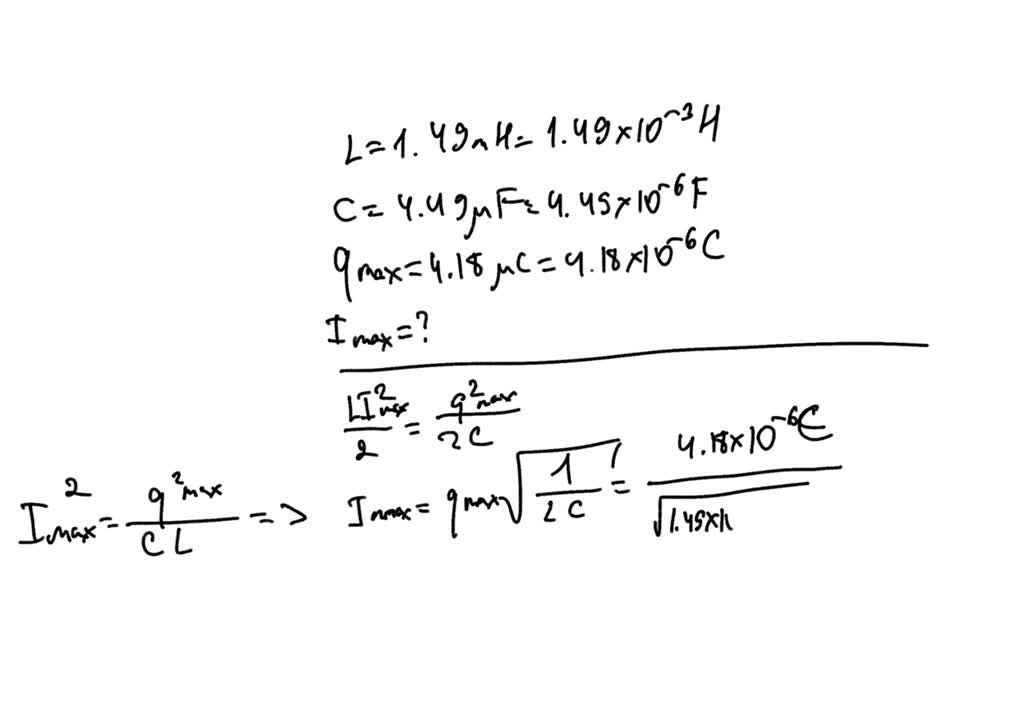 L = 1.49mH = 1.49×10⁻³H
C = 4.49μF = 4.49×10⁻⁶F
qmax = 4.18μC = 4.18×10⁻⁶C
Imax = ?
LI²max/2 = q²max/2C
I²max = q²max/CL => Imax = qmax√(1/LC) = 4.18×10⁻⁶C/√1.49×1